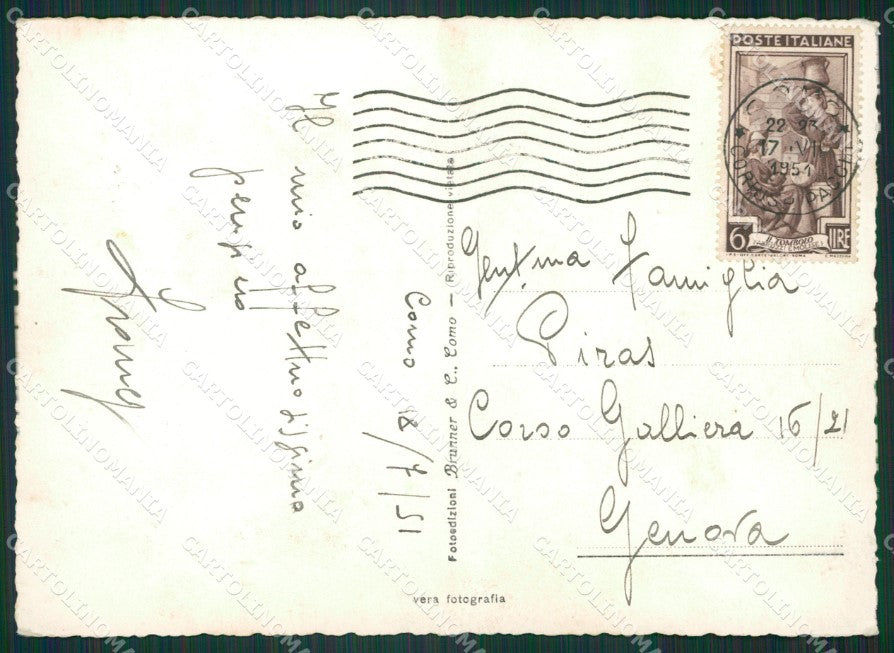 Como 18/7/51
Il mio affettuosissimo
pensiero
POSTE ITALIANE
22
17 · VI
1951
6 LIRE
IL TOMBOLO
Gent.ma Famiglia
Piras
Corso Galliera 16/21
Genova
Fotoedizioni Brunner & C., Como — Riproduzione vietata
vera fotografia
CARTOLINOMANIA